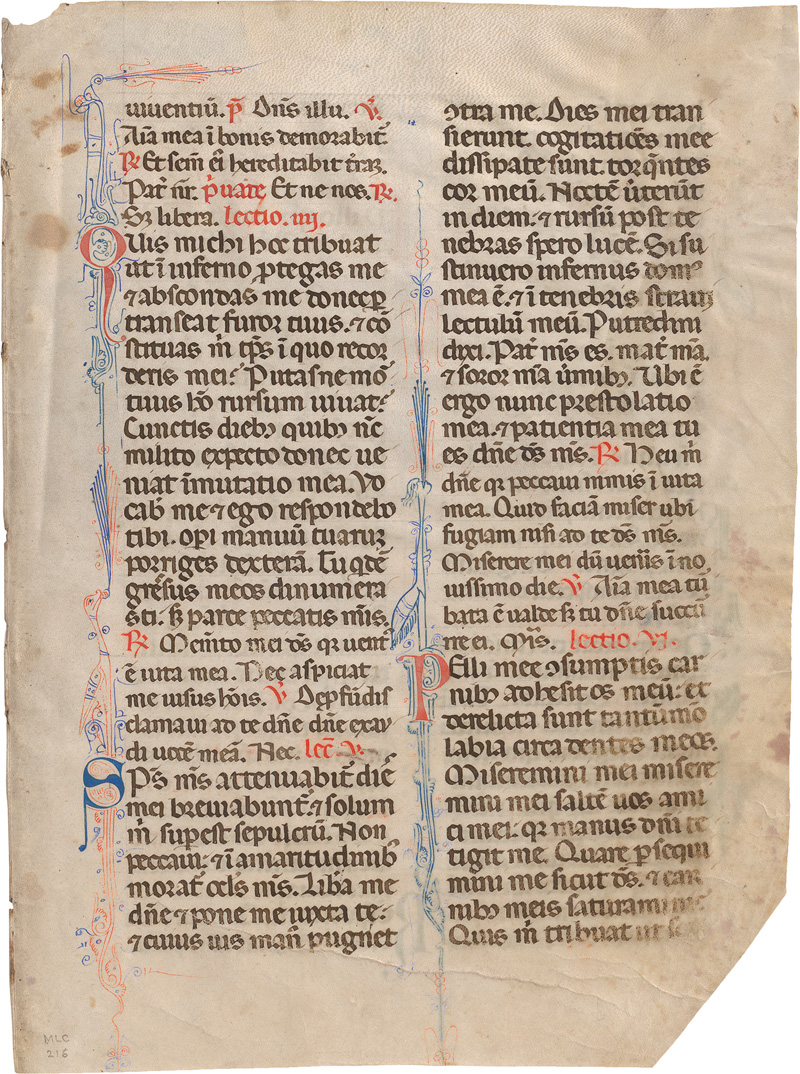 uiuentiū. p̄ Dn̄s illu. V̄.
Aīa mea ī bonis demorabit᷑.
R̷ Et sem̄ ei᷑ hereditabit t̄raꝫ.
Pat᷑ nr̄. p̄uate Et ne nos. R̷.
Sꝫ libera. lectio. iiij.
Quis michi hoc tribuat
ut ī inferno ꝓtegas me
⁊ abscondas me donec ꝑ
transeat furor tuus. ⁊ cō
stituas m̄ tp̄s ī quo recor
deris mei. Putasne mō
tuus hō rursum uiuat.
Cunctis dieb; quib; nc̄
milito expecto donec ue
niat īmutatio mea. Vo
cab̄ me ⁊ ego respondebo
tibi. op̄i manuū tuaruꝫ
porriges dexterā. Tu qdē
gressus meos dinumera
sti. sꝫ parce peccatis mīs.
R̷ Mem̄to mei ds̄ qꝛ uent᷑
ē uita mea. Nec aspiciat
me uisus hōis. V̄ De ꝓfūdis
clamaui ad te dn̄e dn̄e exau
di uocē meā. Nec. lec̄ v.
Sps̄ ms̄ attenuabit᷑ dies
mei breuiabunt᷑. ⁊ solum
m̄ suꝑest sepulcrū. Non
peccaui. ⁊ ī amaritudinib;
morat᷑ ocl's ms̄. Liba me
dn̄e ⁊ pone me iuxta te.
⁊ cuius uis man᷑ pugnet
ꝯtra me. Dies mei tran
sierunt. cogitatiōes mee
dissipate sunt. torq̄ntes
cor meū. Noctē ūterūt
in diem. ⁊ rursū post te
nebras spero lucē. Si su
stinuero infernus dom᷑
mea ē. ⁊ ī tenebris straui
lectulū meū. Putredini
dixi. Pat᷑ ms̄ es. mat᷑ mā.
⁊ soror mā ūmib;. Ubi ē
ergo nunc prestolatio
mea. ⁊ patientia mea tu
es dn̄e ds̄ ms̄. R̷ Heu m̄
dn̄e qꝛ peccaui nimis ī uita
mea. Quid faciā miser ubi
fugiam nisi ad te ds̄ ms̄.
Miserere mei dū ueneis ī no
uissimo die. V̄ Aīa mea tū
bata ē ualde sꝫ tu dn̄e succū
re ei. Mis̄. lectio. vj.
Pelli mee ꝯsumptis car
nib; adhesit os meū. et
derelicta sunt tantūmō
labia circa dentes meos.
Miseremini mei misere
mini mei saltē uos ami
ci mei. qꝛ manus dn̄i te
tigit me. Quare ꝑsequi
mini me sicut ds̄. ⁊ car
nib; meis saturamini
Quis m̄ tribuat ut
MLC
216